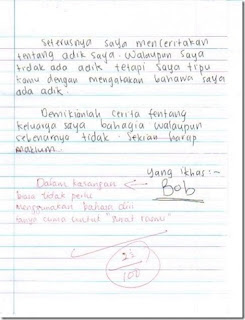 Seterusnya saya menceritakan
tentang adik saya. Walaupun saya
tidak ada adik tetapi saya tipu
kamu dengan mengatakan bahawa saya
ada adik.
Demikianlah cerita tentang
keluarga saya bahagia walaupun
sebenarnya tidak. Sekian harap
maklum.
Yang Ikhas:~
Bob
Dalam karangan
baru tidak perlu
menggunakan bahasa diri
hanya cuma untuk "surat rasmi"
23/100